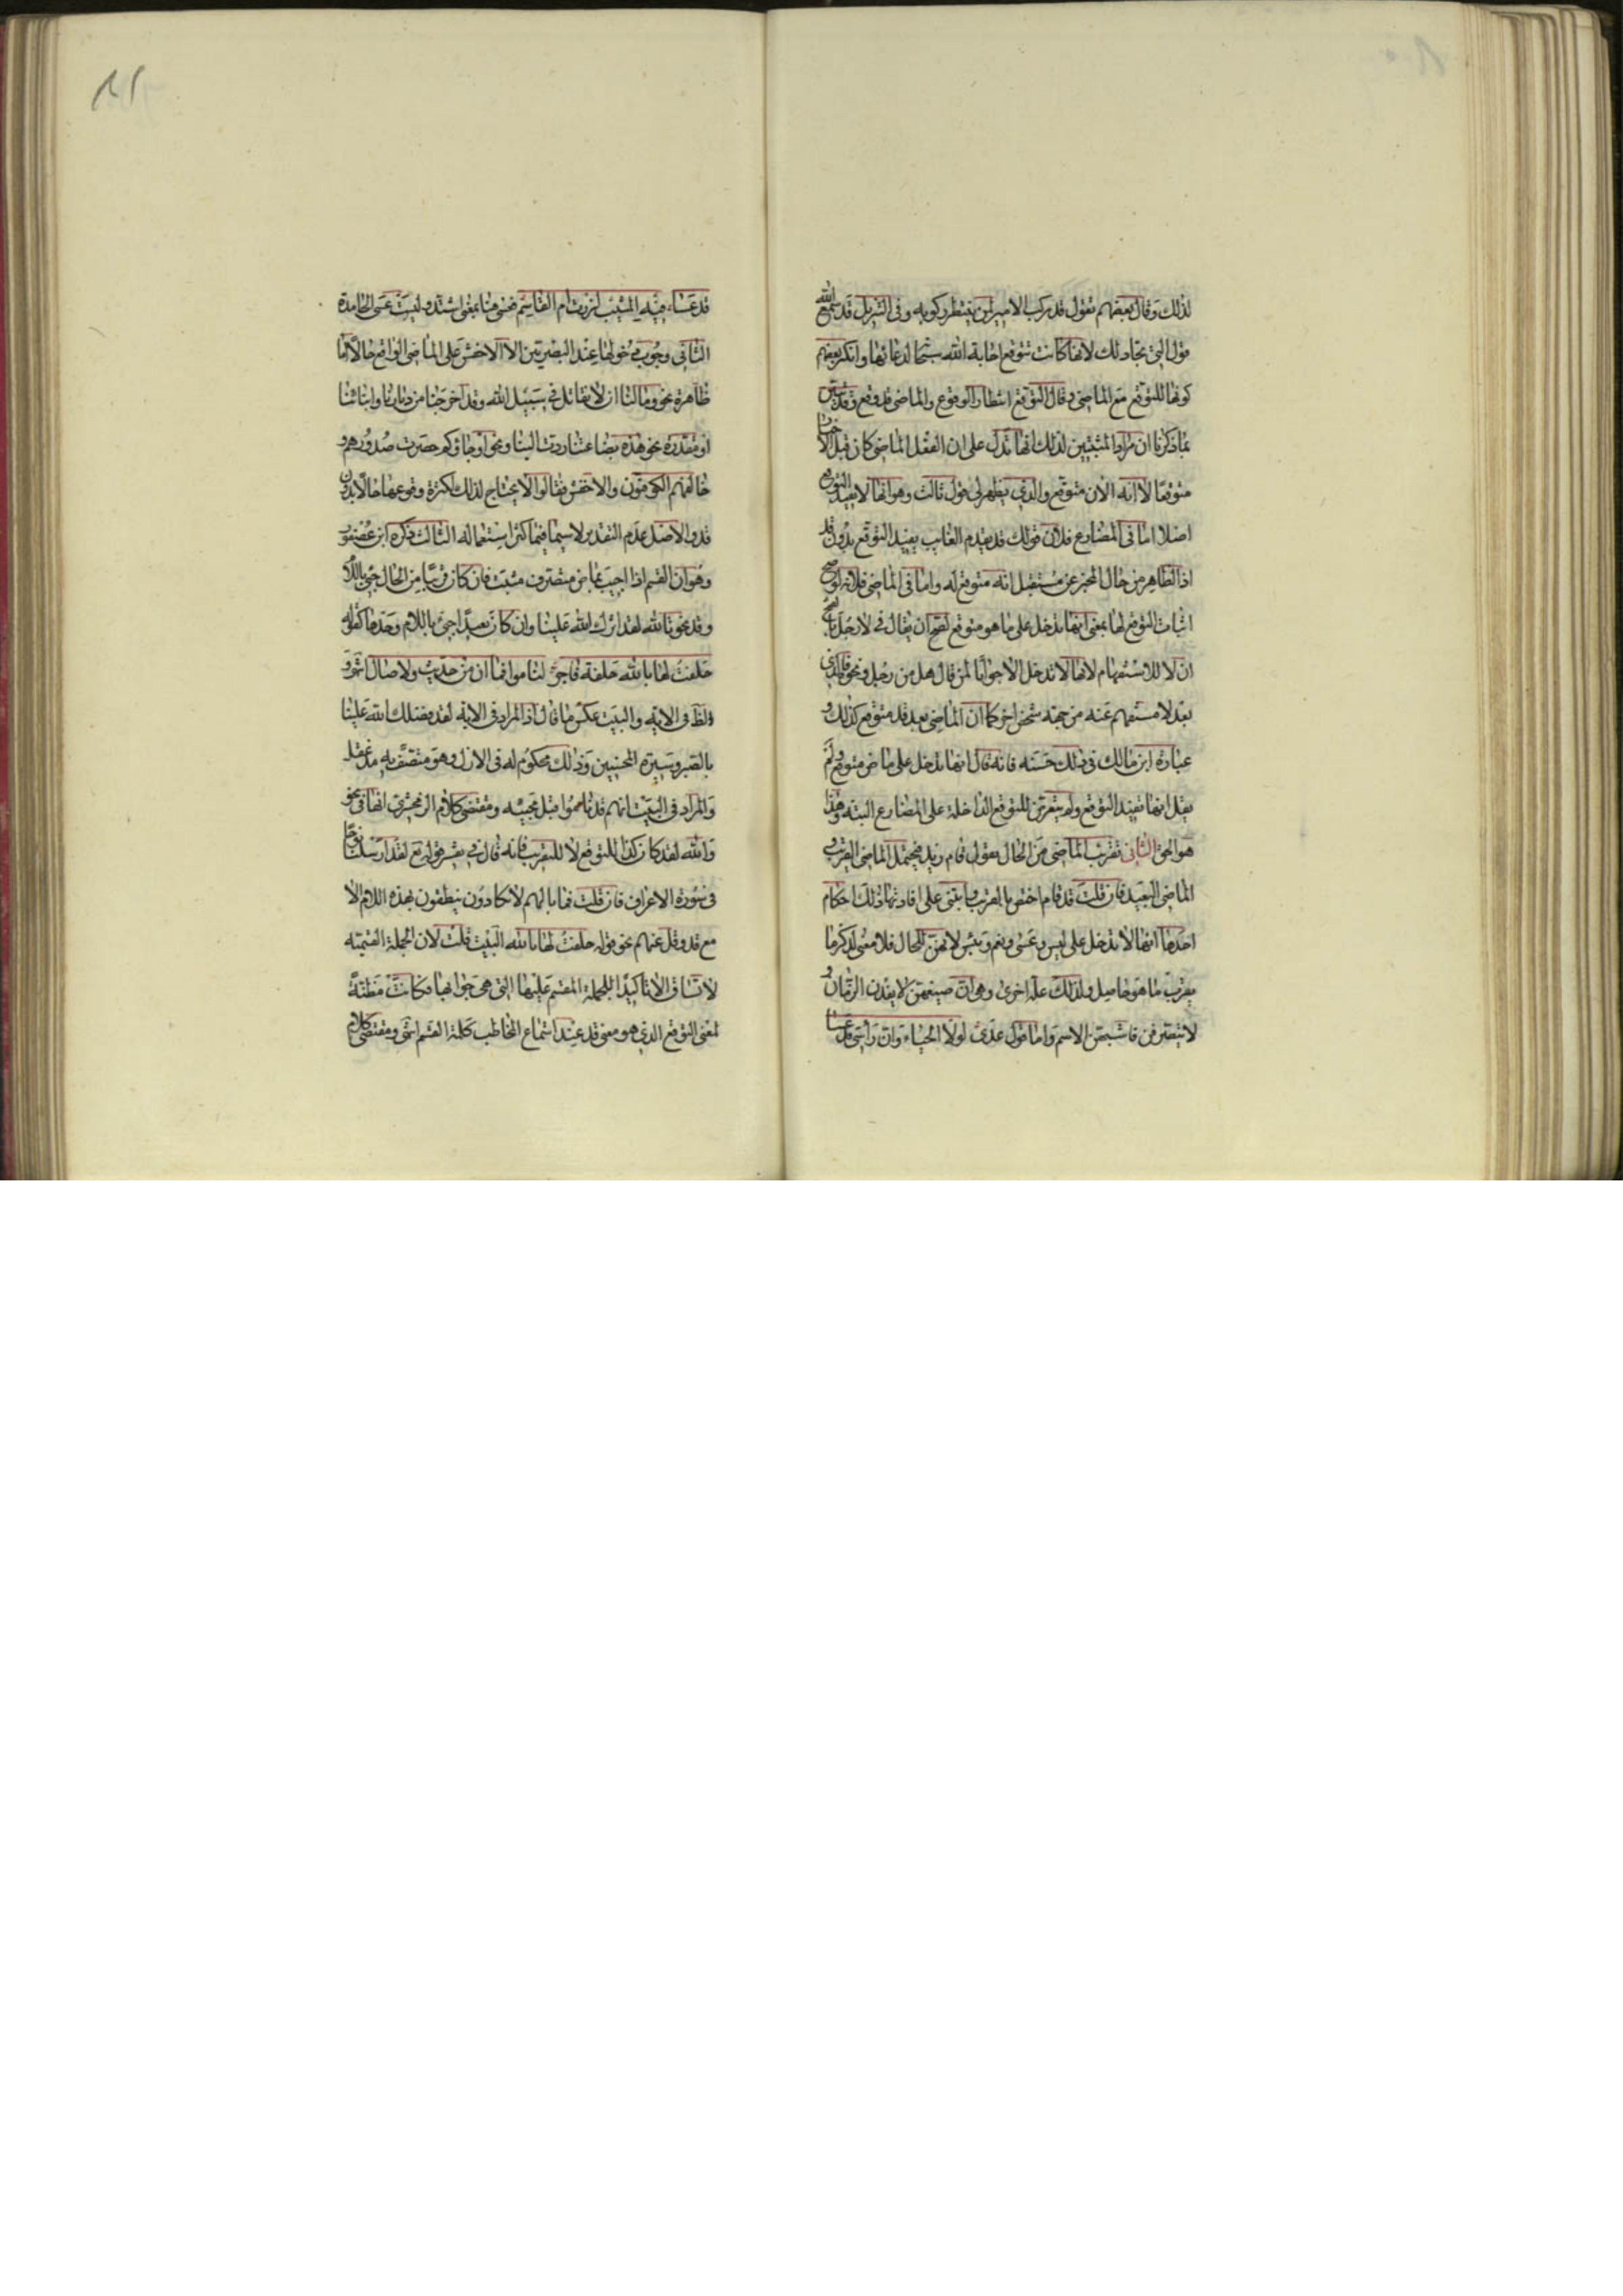 لذلك وقال بعضهم تقول قد ركب الامير لمن ينتظر ركوبه وفى التنزيل قد سمع الله
قول التى تجادلك لانها كانت تتوقع اجابة الله سبحانه لدعائها وانكر بعضهم
كونها للتوقع مع الماضى وقال التوقع انتظار الوقوع والماضى قد وقع وقد تبين
بما ذكرنا ان مراد المثبتين لذلك انها تدل على ان الفعل الماضى كان قبل الاخبار
متوقعا لا انه الان متوقع والذى يظهر لى قول ثالث وهو انها لا تفيد التوقع
اصلا اما فى المضارع فلان قولك قد يقدم الغايب يفيد التوقع بدون قد
اذ الظاهر من حال المخبر عن مستقبل انه متوقع له واما فى الماضى فلانه لو صح
اثبات التوقع لها بمعنى انها تدخل على ما هو متوقع لصح ان يقال فى لا رجل بالفتح
ان لا للاستفهام لانها لا تدخل الا جوابا لمن قال هل من رجل ونحوه فالذى
بعد لا مستفهم عنه من جهة شخص اخر كما ان الماضى بعد قد متوقع كذلك و
عبارة ابن مالك فى ذلك حسنه فانه قال انها تدخل على ماض متوقع ولم
يقل انها تفيد التوقع ولم يتعرض للتوقع الداخلة على المضارع البتة وهذا
هو الحق الثانى تقريب الماضى من الحال تقول قام زيد فيحتمل الماضى القريب و
الماضى البعيد فان قلت قد قام اختص بالقريب وابتنى على افادتها ذلك احكام
احدها انها لا تدخل على ليس وعسى ونعم وبئس لانهن للحال فلا معنى لذكر ما
يقرب ما هو حاصل ولذلك علة اخرى وهى ان صيغهن لا يفدن الزمان و
لا يتصرفن فاشبهن الاسم واما قول عدى لولا الحياء وان راسى قد عسا
قد عساء فيه المشيب لزرت ام القاسم فعسى هنا بمعنى اشتد وليست عسى الجامدة
الثانى وجوب دخولها عند البصريين الا الاخفش على الماضى الواقع حالا اما
ظاهرة نحو وما لنا ان لا نقاتل فى سبيل الله وقد اخرجنا من ديارنا وابنائنا
او مقدرة نحو هذه بضاعتنا ردت الينا ونحو او جاؤكم حصرت صدورهم و
خالفهم الكوفيون والاخفش فقالوا لا يحتاج لذلك لكثرة وقوعها حالا بدون
قد والاصل عدم التقدير لاسيما فيما كثر استعماله الثالث ذكره ابن عصفور
وهو ان القسم اذا اجيب بماض متصرف مثبت فان كان قريبا من الحال جئ باللام
وقد نحو تالله لقد اثرك الله علينا وان كان بعيدا جئ باللام وحدها كقوله
حلفت لها بالله حلفة فاجر لناموا فما ان من حديث ولا صال انتهى و
الظ فى الاية والبيت عكس ما قال اذ المراد فى الاية لقد فضلك الله علينا
بالصبر وسيرة المحسنين وذلك محكوم له فى الازل وهو متصف به مذ عقل
والمراد فى البيت انهم قد ناموا قبل مجيئه ومقتضى كلام الزمخشرى انها فى نحو
والله لقد كان كذا للتوقع لا للتقريب فانه قال فى تفسير قوله تع لقد ارسلنا نوحا
فى سورة الاعراف فان قلت فما بالهم لا يكادون ينطقون بهذه اللام الا
مع قد وقل عنهم نحو قوله حلفت لها بالله البيت قلت لان الجملة القسمية
لا تساق الا تاكيدا للجملة المقسم عليها التى هى جوابها فكانت مظنة
لمعنى التوقع الذى هو معنى قد عند استماع المخاطب كلمة القسم انتهى ومقتضى كلام